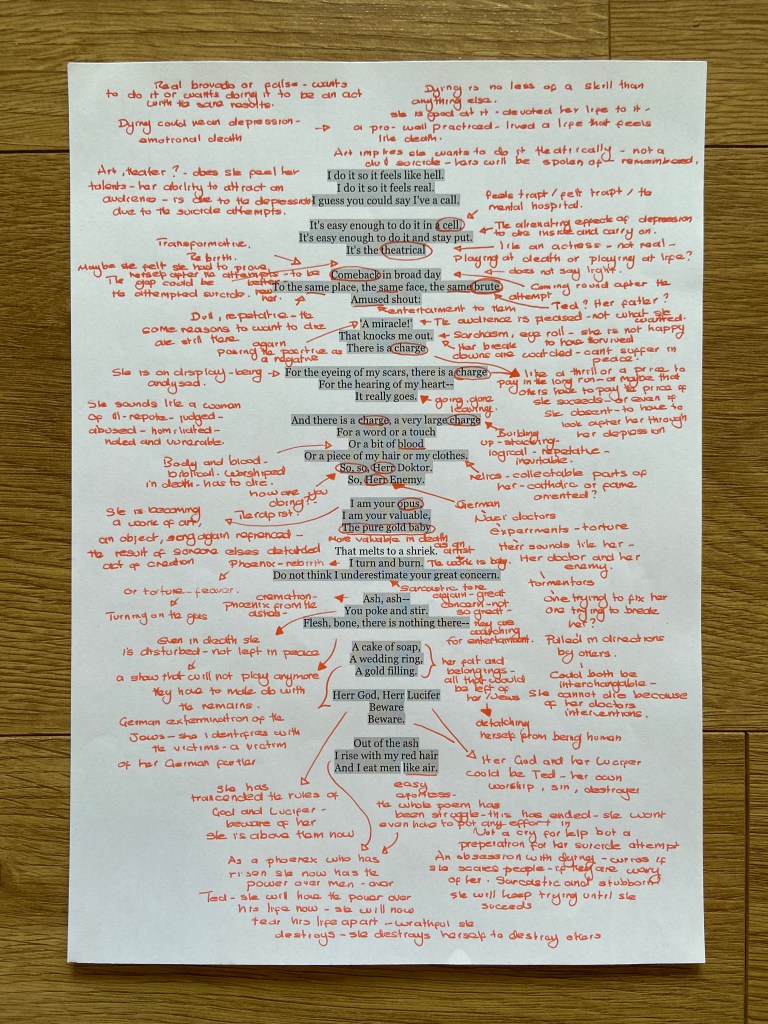 Real bravado or false - wants
to do it or wants doing it to be an act
with the same results.
Dying is no less of a skill than
anything else.
she is good at it - devoted her life to it -
a pro - well practiced - lived a life that feels
like death.
Dying could mean depression -
emotional death
Art implies she wants to do it theatrically - not a
dull suicide - hers will be spoken of - remembered.
Art, theater? - does she feel her
talents - her ability to attract an
audience - is due to the depression
due to the suicide attempts.
I do it so it feels like hell.
I do it so it feels real.
I guess you could say I've a call.
feels trapt / felt trapt / the
mental hospital.
It's easy enough to do it in a cell.
It's easy enough to do it and stay put.
It's the theatrical
The alienating effects of depression
to die inside and carry on.
like an actress - not real -
Playing at death or playing at life?
Transformative.
Rebirth.
Maybe she felt she had to prove
herself after the attempts - to be
better
The gap could be
the attempted suicide.
her.
Comeback in broad day
To the same place, the same face, the same brute
Amused shout:
does not say light.
Coming round after the
attempt
Ted? Her father?
entertainment to them
Dull, repetative - the
same reasons to want to die
are still there
again
Posing the positive as
a negative
'A miracle!'
That knocks me out.
There is a charge
The audience is pleased - not what she
wanted.
Sarchasm, eye roll - she is not happy
to have survived
Her break
downs are watched - cant suffer in
peace.
She is on display - being
analysed.
For the eyeing of my scars, there is a charge
For the hearing of my heart--
It really goes.
like a thrill or a price to
pay in the long run - or maybe that
others have to pay the price if
she suceeds - or even if
she doesnt - to have to
look after her through
her depression
going, gone
leaving.
She sounds like a woman
of ill-repute - judged -
abused - humiliated -
And there is a charge, a very large charge
For a word or a touch
Or a bit of blood
Or a piece of my hair or my clothes.
So, so, Herr Doktor.
So, Herr Enemy.
Building
up - stacking -
logical - repetative -
inevitable.
Body and blood -
biblical. worshiped
in death - has to die.
how are you
doing?
Therapist.
collectable parts of
her - cathartic or fame
oriented?
German
Nazi doctors
experiments - torture
She is becoming
a work of art,
an object, song again referenced -
the result of someone elses detatched
act of creation
I am your opus,
I am your valuable,
The pure gold baby
More valuable in death
as an
artist
That melts to a shriek.
I turn and burn.
Do not think I underestimate your great concern.
Phoenix - rebirth
The work is
Herr sounds like her -
Her doctor and her
enemy.
tormentors
One trying to fix her
one trying to break
her?
or torture - fever.
Turning on the gas
cremation -
Phoenix from the
ashes -
Ash, ash--
You poke and stir.
Flesh, bone, there is nothing there--
Sarcastic tone
again - great
concern - not
so great -
they are
watching
for entertainment.
Pulled in directions
by others.
Even in death she
is disturbed - not left in peace
a show that will not play anymore
they have to make do with
the remains.
A cake of soap,
A wedding ring,
A gold filling.
her fat and
belongings -
all that would
be left of
her/Jews
Could both be
interchangable -
She cannot die because
of her doctors
interventions.
German extermination of the
Jews - she identifies with
the victims - a victim
of her German father
Herr God, Herr Lucifer
Beware
Beware.
detatching
herself from being human
Out of the ash
I rise with my red hair
And I eat men like air.
Her God and her Lucifer
could be Ted - her own
worship, sin, destroyer
She has
trancended the rules of
God and Lucifer -
beware of her
She is above them now
easy
effortless -
the whole poem has
been struggle - this has ended - she wont
even have to put any effort in
Not a cry for help but a
preperation for her suicide attempt
An obsession with dying - curious if
she scares people - if they are wary
of her. Sarcastic and stubborn
she will keep trying until she
suceeds
As a phoenix who has
risen she now has the
power over men - over
Ted - she will have the power over
his life now - she will now
tear his life apart - wrathful she
destroys - she destroys herself to destroy others